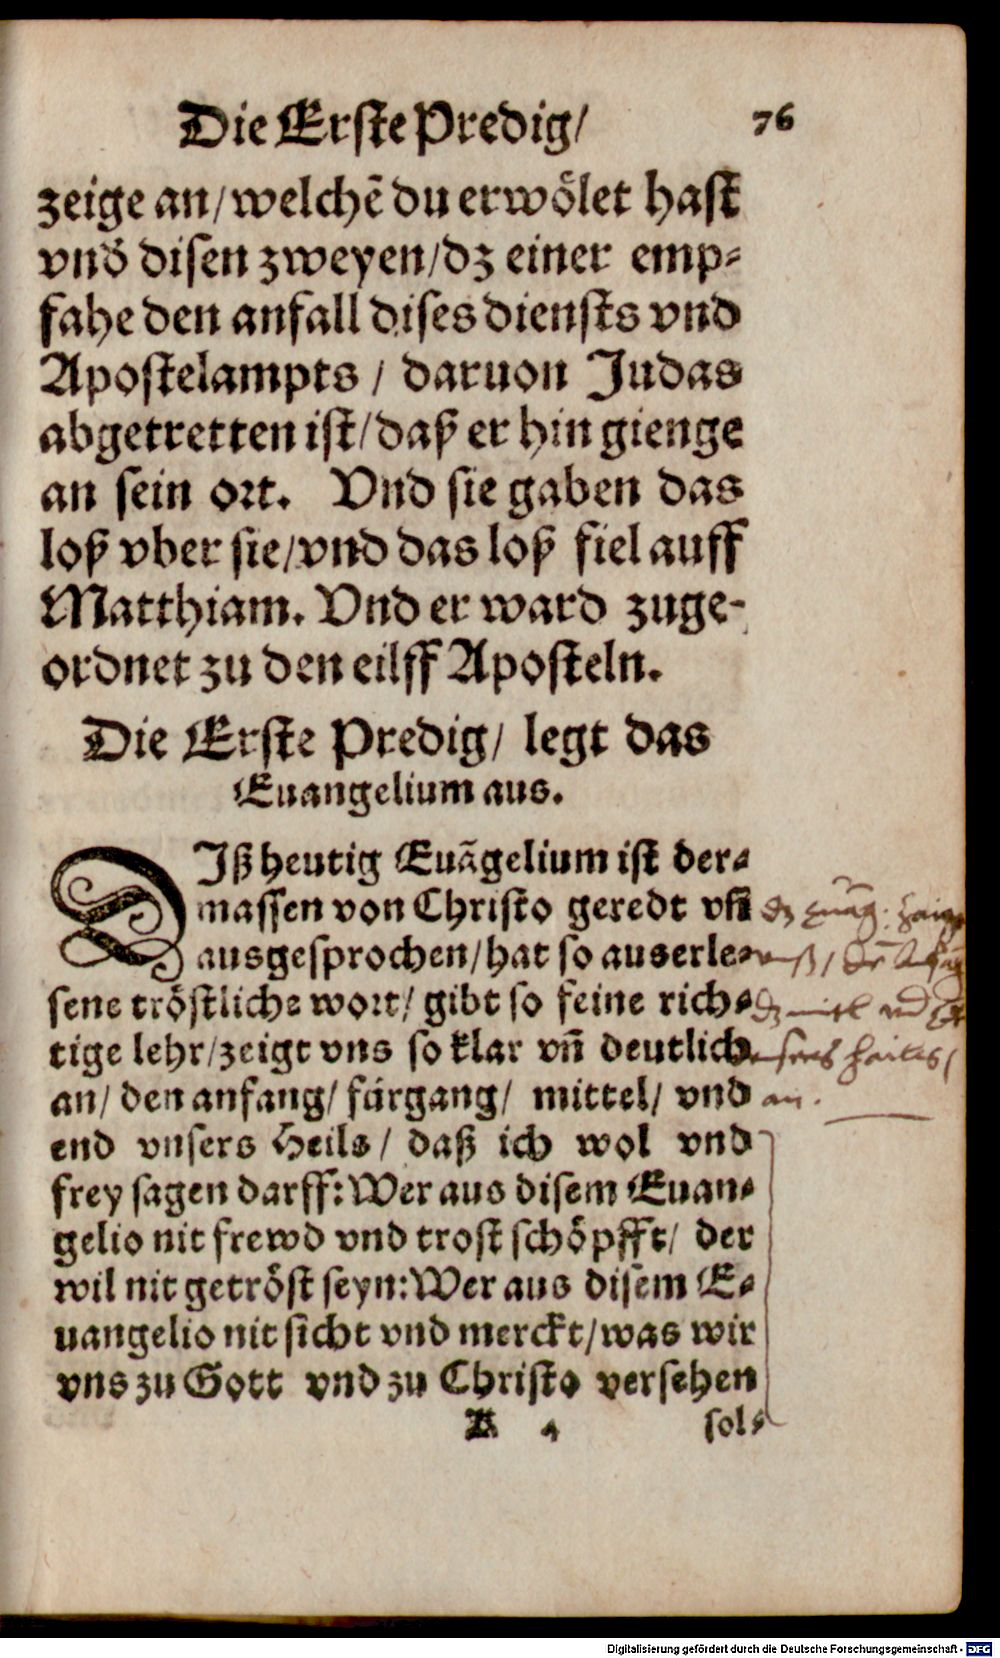 Die Erste Predig/ 76
zeige an/welchẽ du erwölet hast
vnď disen zweyen/dz einer emp-
fahe den anfall dises diensts vnd
Apostelampts / daruon Judas
abgetretten ist/daß er hin gienge
an sein ort. Vnd sie gaben das
loß vber sie/vnd das loß fiel auff
Matthiam. Vnd er ward zuge-
ordnet zu den eilff Aposteln.
Die Erste Predig/ legt das
Euangelium aus.
DIß heutig Euãgelium ist der-
massen von Christo geredt vñ
ausgesprochen/hat so auserle-
sene tröstliche wort/ gibt so feine rich-
tige lehr/zeigt vns so klar vñ deutlich
an/ den anfang/ fürgang/ mittel/ vnd
end vnsers Heils/ daß ich wol vnd
frey sagen darff:Wer aus disem Euan-
gelio nit frewd vnd trost schöpfft/ der
wil nit getröst seyn:Wer aus disem E-
uangelio nit sicht vnd merckt/was wir
vns zu Gott vnd zu Christo versehen
K 4 sol-
dz mitl vnd
vnsers hailes/
an.
Digitalisierung gefördert durch die Deutsche Forschungsgemeinschaft - DFG